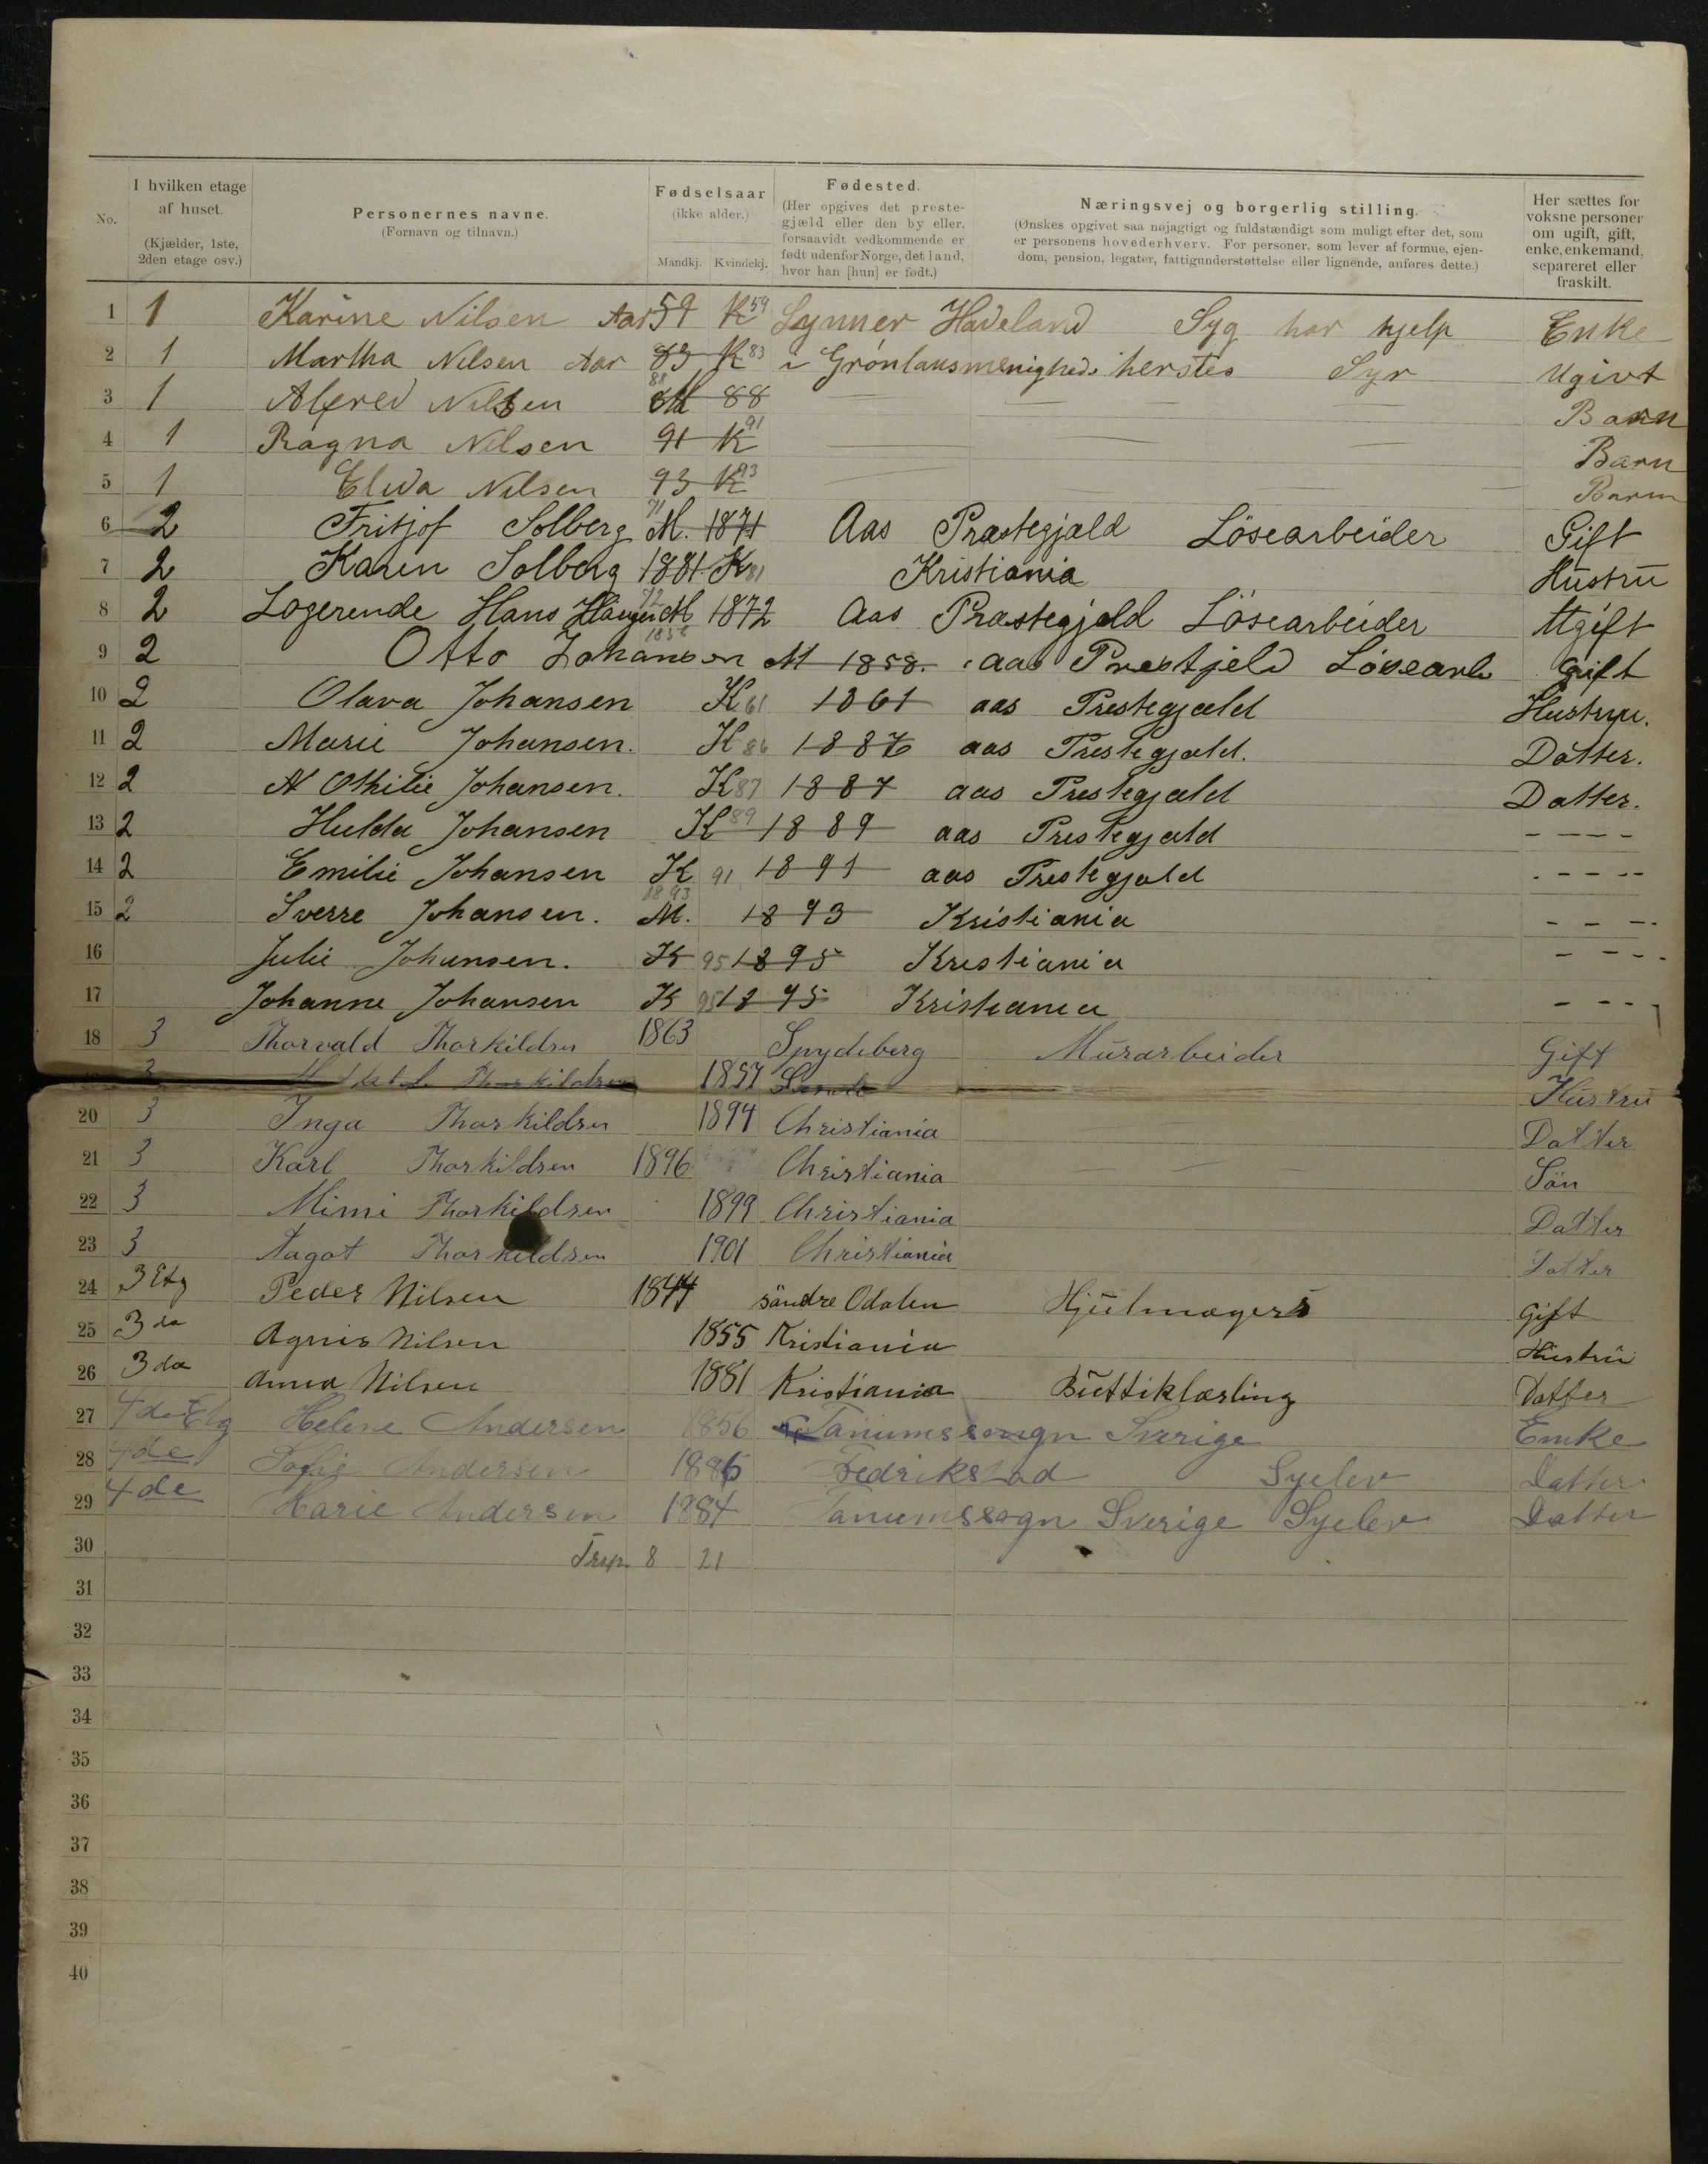 No.
I hvilken etage af huset.
(Kjælder, 1ste, 2den etage osv.)
Personernes navne.
(Fornavn og tilnavn.)
Fødselsaar
(ikke alder.)
Mandkj. Kvindekj.
Fødested.
(Her opgives det prestegjæld eller den by eller, forsaavidt vedkommende er født udenfor Norge, det land, hvor han [hun] er født.)
Næringsvej og borgerlig stilling.
(Ønskes opgivet saa nøjagtigt og fuldstændigt som muligt efter det, som er personens hovederhverv. For personer, som lever af formue, ejendom, pension, legater, fattigunderstøttelse eller lignende, anføres dette.)
Her sættes for voksne personer om ugift, gift, enke, enkemand, separeret eller fraskilt.
1 1 Karine Nilsen Aar 59 K 59 Lynner Hadeland Syg har hjelp Enke
2 1 Martha Nilsen Aar 83 K 83 i Grönlansmenigheds herstes Syr Ugivt
3 1 Alfred Nilsen 88 M 88 — — — Barn
4 1 Ragna Nilsen 91 K 91 — — — Barn
5 1 Nilsen 93 K 93 — — — Barn
6 2 Fritjof Solberg 71 M. 1871 Aas Præstegjæld Lösearbeider Gift
7 2 Karen Solberg 1881 K 81 Kristiania Hustru
8 2 Logerende Hans Haugen 72 M 1872 Aas Præstegjæld Lösearbeider Ugift
9 2 Otto Johansen 1858 M 1858. aas Prestjeld Lösearb Gift
10 2 Olava Johansen K 61 1861 aas Prestegjæld Hustrye.
11 2 Marie Johansen. K 86 1886 aas Prestegjæld. Datter.
12 2 A Othilie Johansen. K 87 1887 aas Prestegjæld Datter.
13 2 Hulda Johansen K 89 1889 aas Prestegjæld - - - -
14 2 Emilie Johansen K 91 1891 aas Prestegjæld - - - -
15 2 Sverre Johansen. 1893 M. 1893 Kristiania - - -
16 Julie Johansen. K 95 1895 Kristiania - - -
17 Johanne Johansen K 95 1895 Kristiania - - -
18 3 Thorvald Thorkildsen 1863 Spydeberg Murarbeider Gift
3 Thorkildsen 1857 Hustru
20 3 Inga Thorkildsen 1894 Christiania Datter
21 3 Karl Thorkildsen 1896 Christiania Sön
22 3 Mimi Thorkildsen 1899 Christiania Datter
23 3 Aagot Thorkildsen 1901 Christiania Datter
24 3 Etg Peder Nilsen 1844 söndre Odalen Hjulmager Gift
25 3 do Agnes Nilsen 1855 Kristiania Hustru
26 3 do Anna Nilsen 1881 Kristiania Buttiklærling Datter
27 4de Etg Helene Andersen 1856 Tanumssogn Sverige Enke
28 4de Sofie Andersen 1886 Fedrikstad Syelev Datter
29 4de Marie Andersen 1884 Tanumssogn Sverige Syelev Datter
30 8 21
31
32
33
34
35
36
37
38
39
40